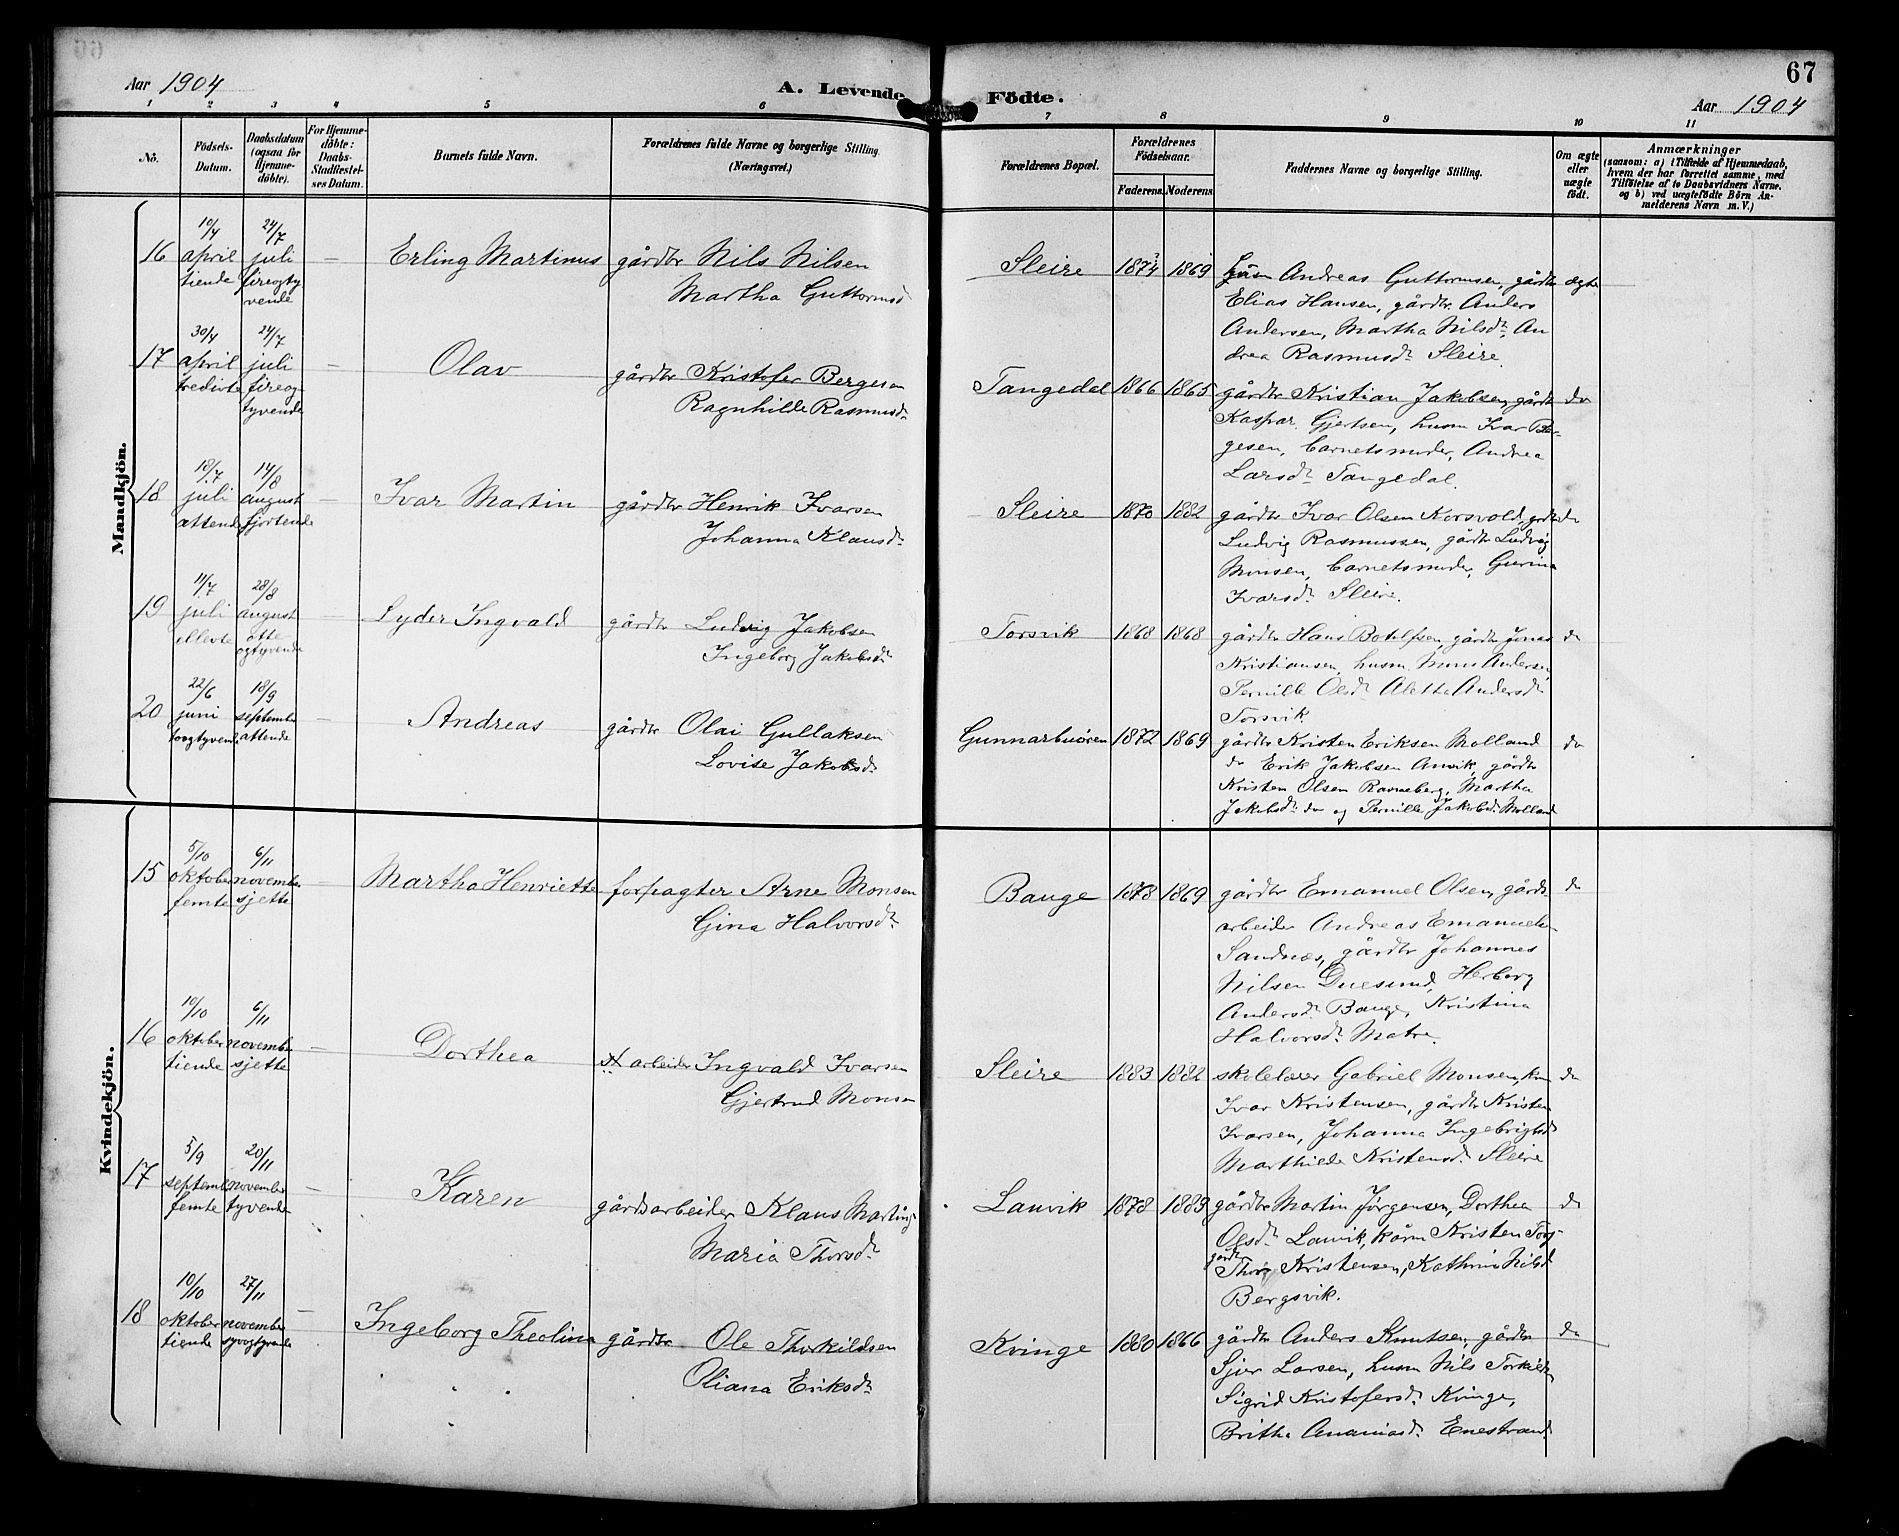 67
Aar 1904
A. Levende Födte.
Aar 1904
1 2 3 4 5 6 7 8 9 10 11
No.
Födsels-
Datum.
Daabsdatum
(ogsaa for
Hjemme-
döbte).
For Hjemme-
döbte:
Daabs-
Stadfæstel-
ses Datum.
Barnets fulde Navn.
Forældrenes fulde Navne og borgerlige Stilling
(Næringsvei.)
Forældrenes Bopæl.
Forældrenes
Födselsaar.
Faderens. Moderens.
Faddernes Navne og borgerlige Stilling.
Om ægte
eller
uægte
födt.
Anmærkninger
(saasom: a) i Tilfælde af Hjemmedaab,
hvem der har forrettet samme, med
Tilföielse af to Daabsvidners Navne.
og b) ved uægtefödte Börn An-
melderens Navn m. V.)
Mandkjön.
16
10/4
april
tiende
24/7
juli
fireogty
vende
Erling Martinus
gårdbr Nils Nilsen
Martha Guttormsd
Sleire
1874
1869
Andreas Guttormsen, gårdbr
Elias Hansen, gårdbr. Anders
Andersen, Martha Nilsdr. An
drea Rasmusdr. Sleire
ægte
17
30/4
april
tredivte
24/7
juli
fireog-
tyvende
Olav
gårdbr Kristofer Bergesen
Ragnhilde Rasmusdr
Tangedal
1866
1865
gårdbr Kristian Jakobsen, gårdbr
Kaspar Gjertsen, husm Ivar Ber-
gesen, barnetsmoder, Andrea
Larsdr. Tangedal.
do
18
18/7
juli
attende
14/8
august
fjortende
Ivar Martin
gårdbr Henrik Ivarsen
Johanna Klausdr
Sleire
1870
1882
gårdbr Ivar Olsen Korsvold, grdbr
Ludvig Rasmussen, gårdbr Ludvig
Monsen, barnetsmoder, Gurina
Ivarsdr. Sleire.
do
19
11/7
juli
ellevte
28/8
august
otte
ogtyvende
Lyder Ingvald
gårdbr Ludvig Jakobsen
Ingeborg Jakobsdr
Torsvik
1868
1868
gårdbr Hans Botolfsen, gårdbr Jonas
Kristiansen, husm. Mons Andersen
Pernille Olsdr Aletta Andersdr
Torsvik
do
20
22/6
juni
toogtyvende
18/9
september
attende
Andreas
gårdbr Olai Gullaksen
Lovise Jakobsdr
Gunnarbuören
1872
1869
gårdbr Kristen Eriksen Molland
do Erik Jakobsen Anvik, gårdbr
Kristen Olsen Ravneberg, Martha
Jakobsdr. do og Pernille Jakobsdr. Molland
do
Kvindekjön.
15
5/10
oktober
femte
6/11
november
sjette
Martha Henriette
forpagter Arne Monsen
Gina Halvorsdr
Bauge
1878
1869
gårdbr Emanuel Olsen, gårds
arbeider Andreas Emanuels
Sandnæs, gårdbr Johannes
Nilsen Duesund, Herborg
Andersdr Bauge, Kristina
Halvorsdr Matre.
do
16
10/10
oktober
tiende
6/11
november
sjette
Dorthea
arbeider Ingvald Ivarsen
Gjertrud Monsen
Sleire
1883
1882
skolelærer Gabriel Monsen,
Ivar Kristensen, gårdbr Kristen
Ivarsen, Johanna Ingebrigtsd
Marthilde Kristensdr. Sleire
do
17
5/9
septembr
femte
20/11
november
tyvende
Karen
gårdsarbeider Klaus Martins
Maria Thorsdr
Lauvik
1878
1883
gårdbr Martin Jørgensen, Dorthea
Olsdr. Lauvik, kårm Kristen Tors-
gårdbr
Thors Kristensen, Kathrina Nilsd
Bergsvik.
do
18
10/10
oktober
tiende
27/11
november
syvogtyvende
Ingeborg Theolina
gårdbr Ole Thorkildsen
Oliana Eriksdr
Kvinge
1880
1866
gårdbr Anders Knutsen, gårdbr
Sjur Larsen, husm Nils Torkilds
Sigrid Kristofersdr. Kvinge,
Britha Ananiasdr. Enestrand
do